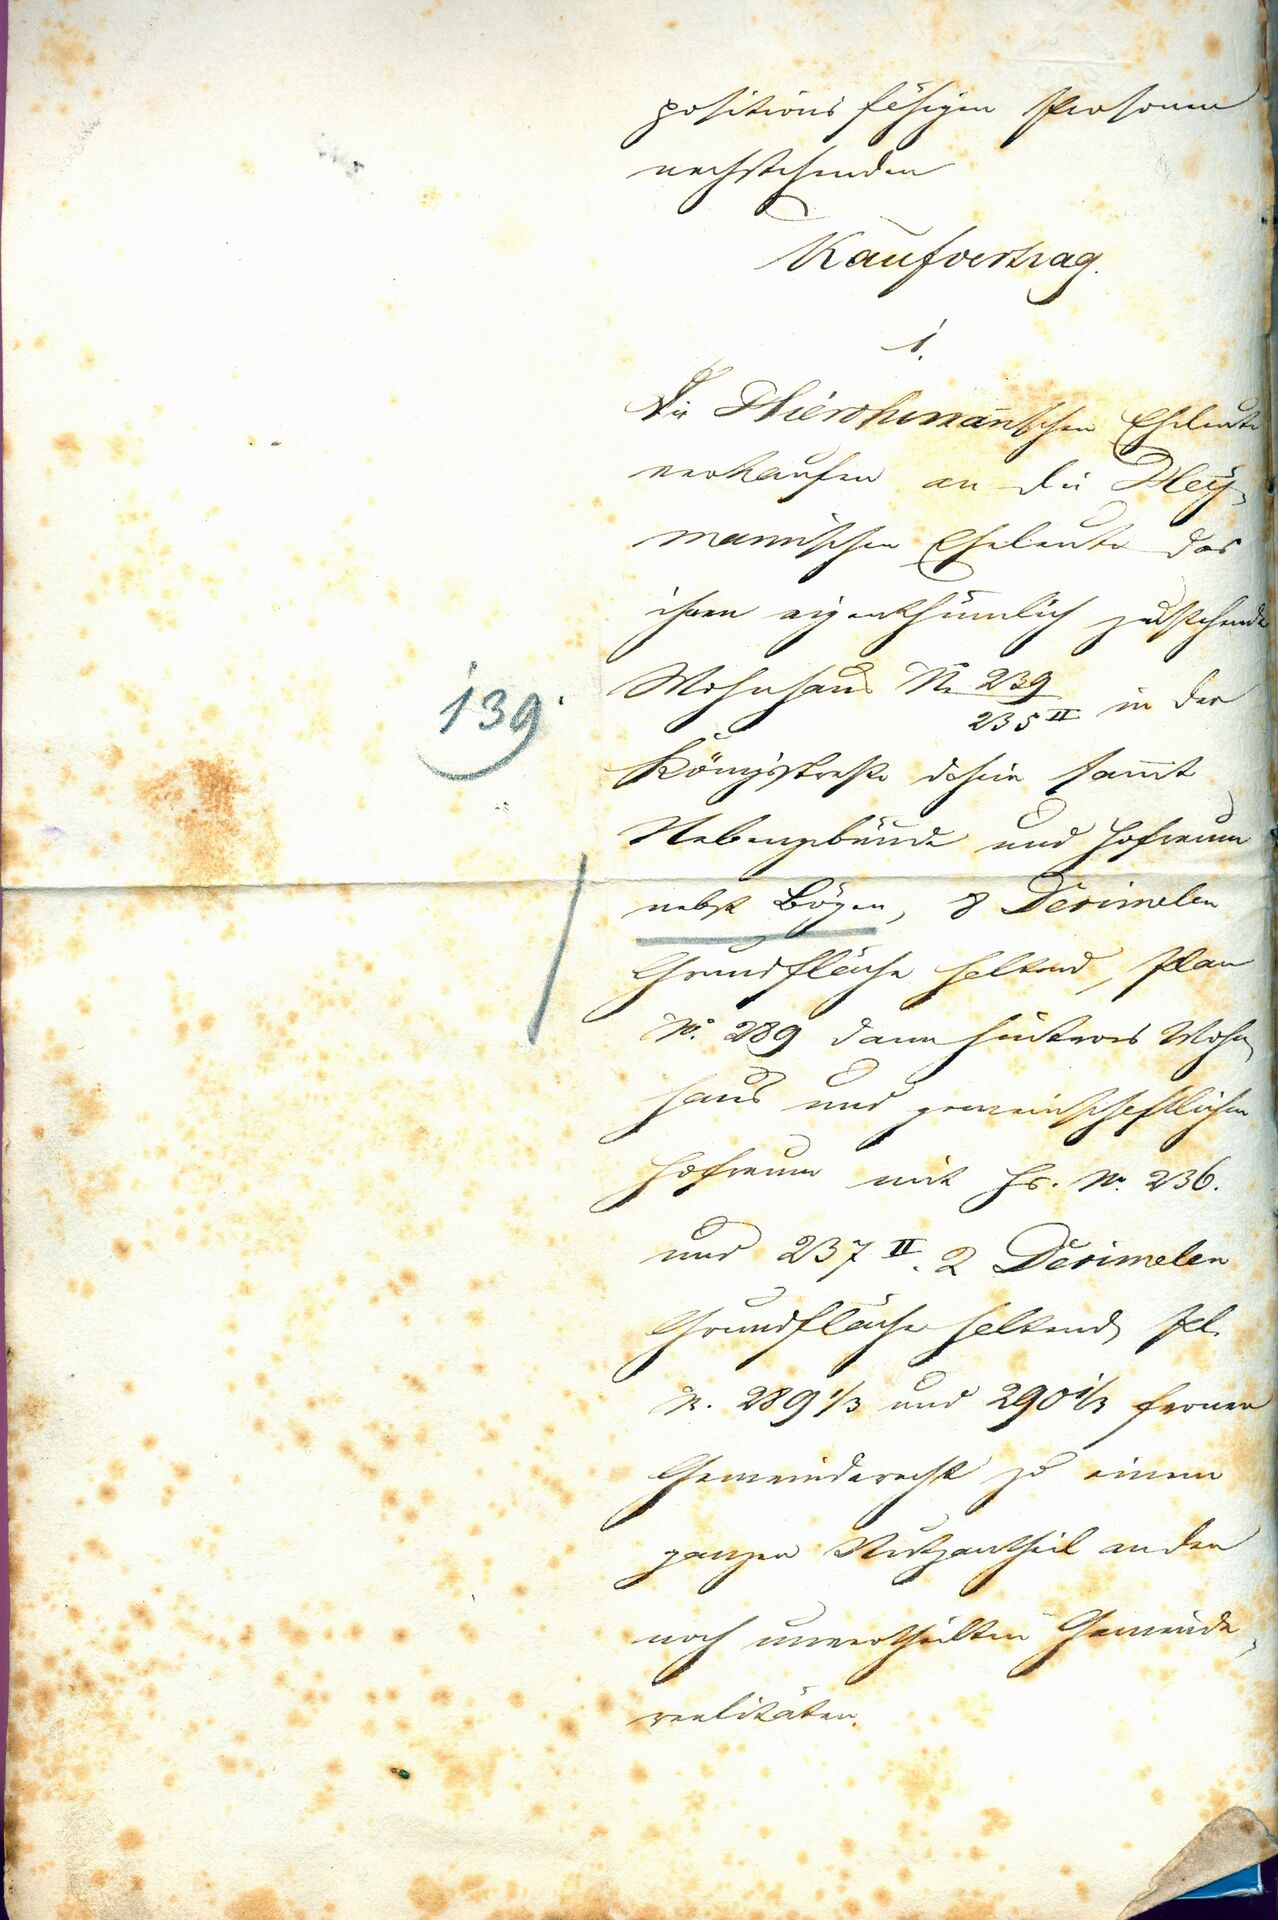 positions fähigen Personen
nachstehenden
Kaufvertrag.
1.
Die Eheleute
verkaufen an die Mey-
mannischen Eheleute das
ihnen eigenthümlich zustehende
Wohnhaus No 239
235 II in der
Königsstraße dahier sammt
Nebengebäude und Hofraum
139.
nebst Bögen, 8 Dezimalen
Grundfläche haltend, Plan
No. 289 dann hinteres Wohn-
haus und gemeinschaftlichen
Hofraum mit Hs. No. 236.
und 237 II. 2 Dezimalen
Grundfläche haltend, Pl.
N. 289 1/3 und 290 1/3 ferner
Gemeinderecht zu einem
ganzen Nutzantheil an den
noch unvertheilten Gemeinde-
realitäten.